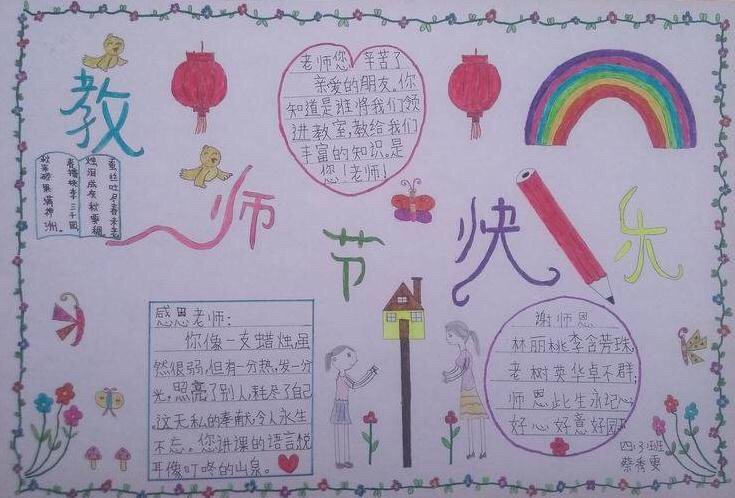 教师节快乐
老师您 辛苦了
亲爱的朋友,你
知道是谁将我们领
进教室,教给我们
丰富的知识。是
您!老师!
春蚕吐尽春未老
烛泪成灰秋更稠
春播桃李三千圃
秋来硕果满神洲。
感恩老师:
你像一支蜡烛,虽
然很弱,但有一分热,发一分
光,照亮了别人,耗尽了自己
,这无私的奉献,令人永生
不忘。您讲课的语言,悦
耳像叮咚的山泉。
谢师恩
林丽桃李含芳珠,
老树英华卓不群;
师恩此生永记心,
好心好意好园
四.3班